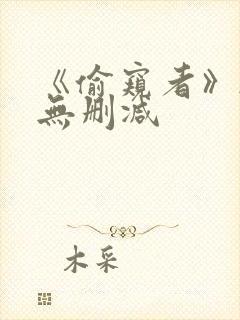 《偷窺者》
無刪減
木采